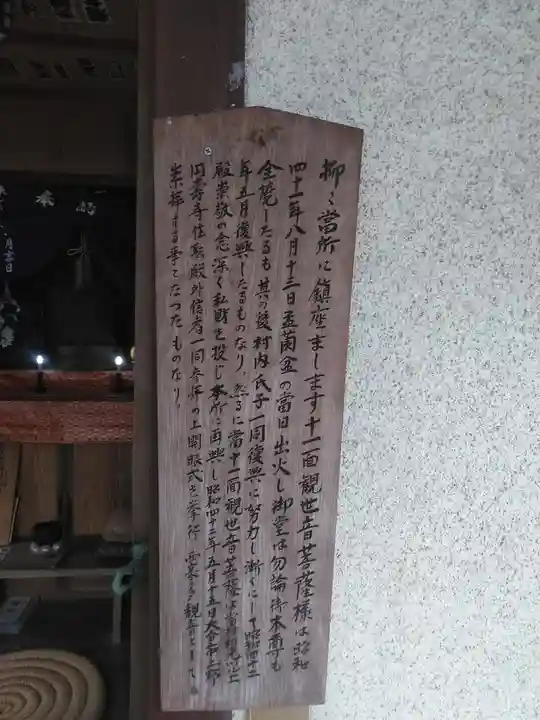 抑々當所に鎮座まします十一面観世音菩薩様は昭和
四十一年八月十三日盂蘭盆の當日出火し御堂は勿論御本尊も
全焼したるも其の後村内氏子一同復興に努力し漸くにして昭和四十二
年五月復興したるものなり、然るに當十一面観世音菩薩は
殿崇敬の念深く私財を投じ本所に再興し昭和四十二年五月十五日大
円壽寺住職殿外信者一同参拝の上開眼式を挙行 観音として
崇拝する事となつたものなり、